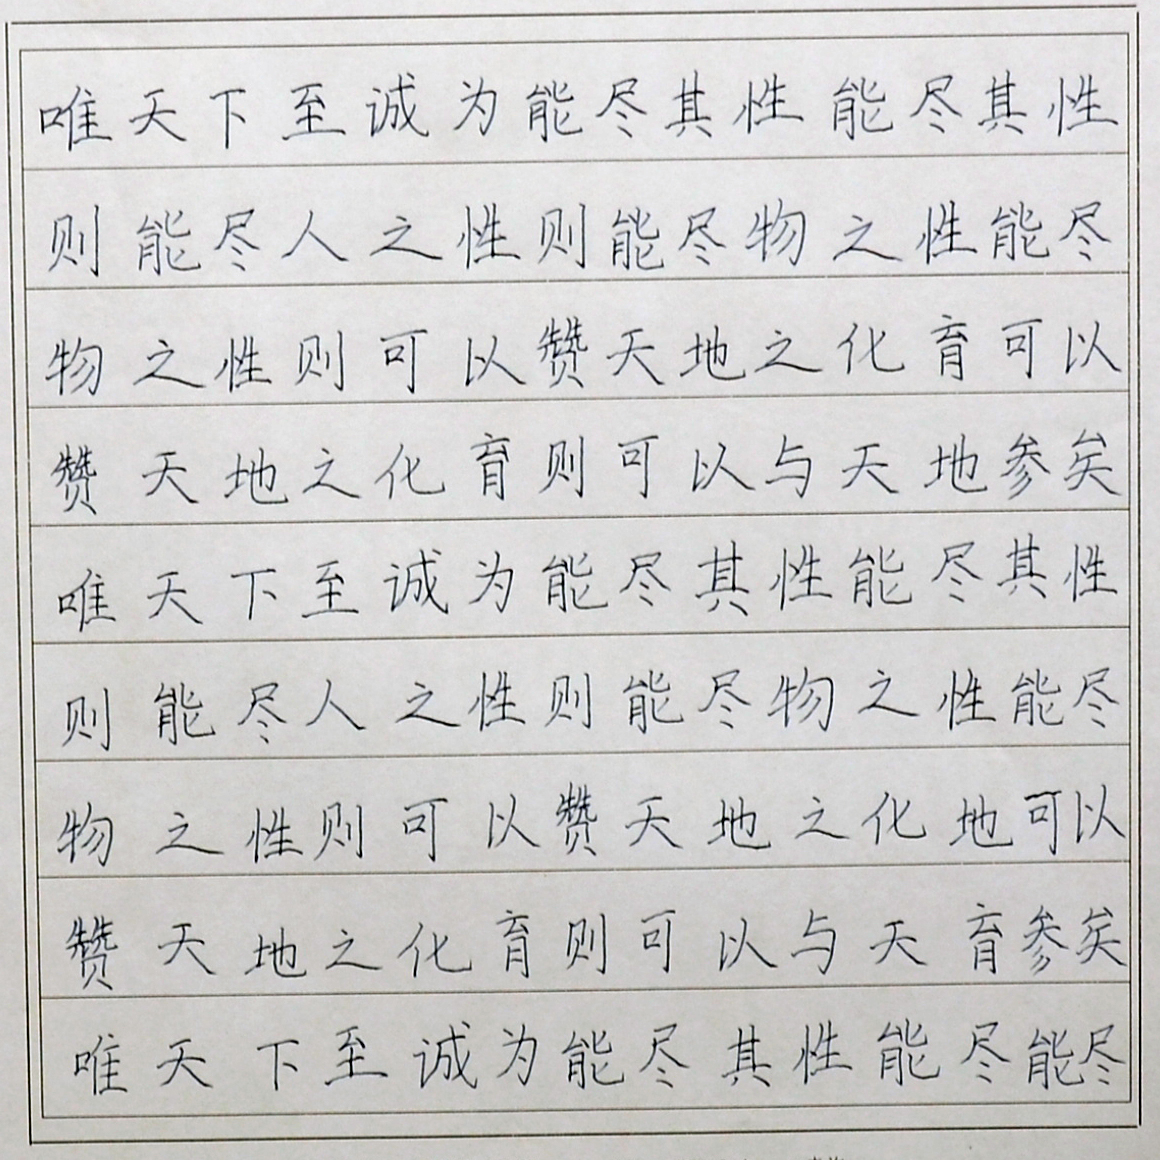 唯天下至诚为能尽其性能尽其性
则能尽人之性则能尽物之性能尽
物之性则可以赞天地之化育可以
赞天地之化育则可以与天地参矣
唯天下至诚为能尽其性能尽其性
则能尽人之性则能尽物之性能尽
物之性则可以赞天地之化地可以
赞天地之化育则可以与天育参矣
唯天下至诚为能尽其性能尽能尽